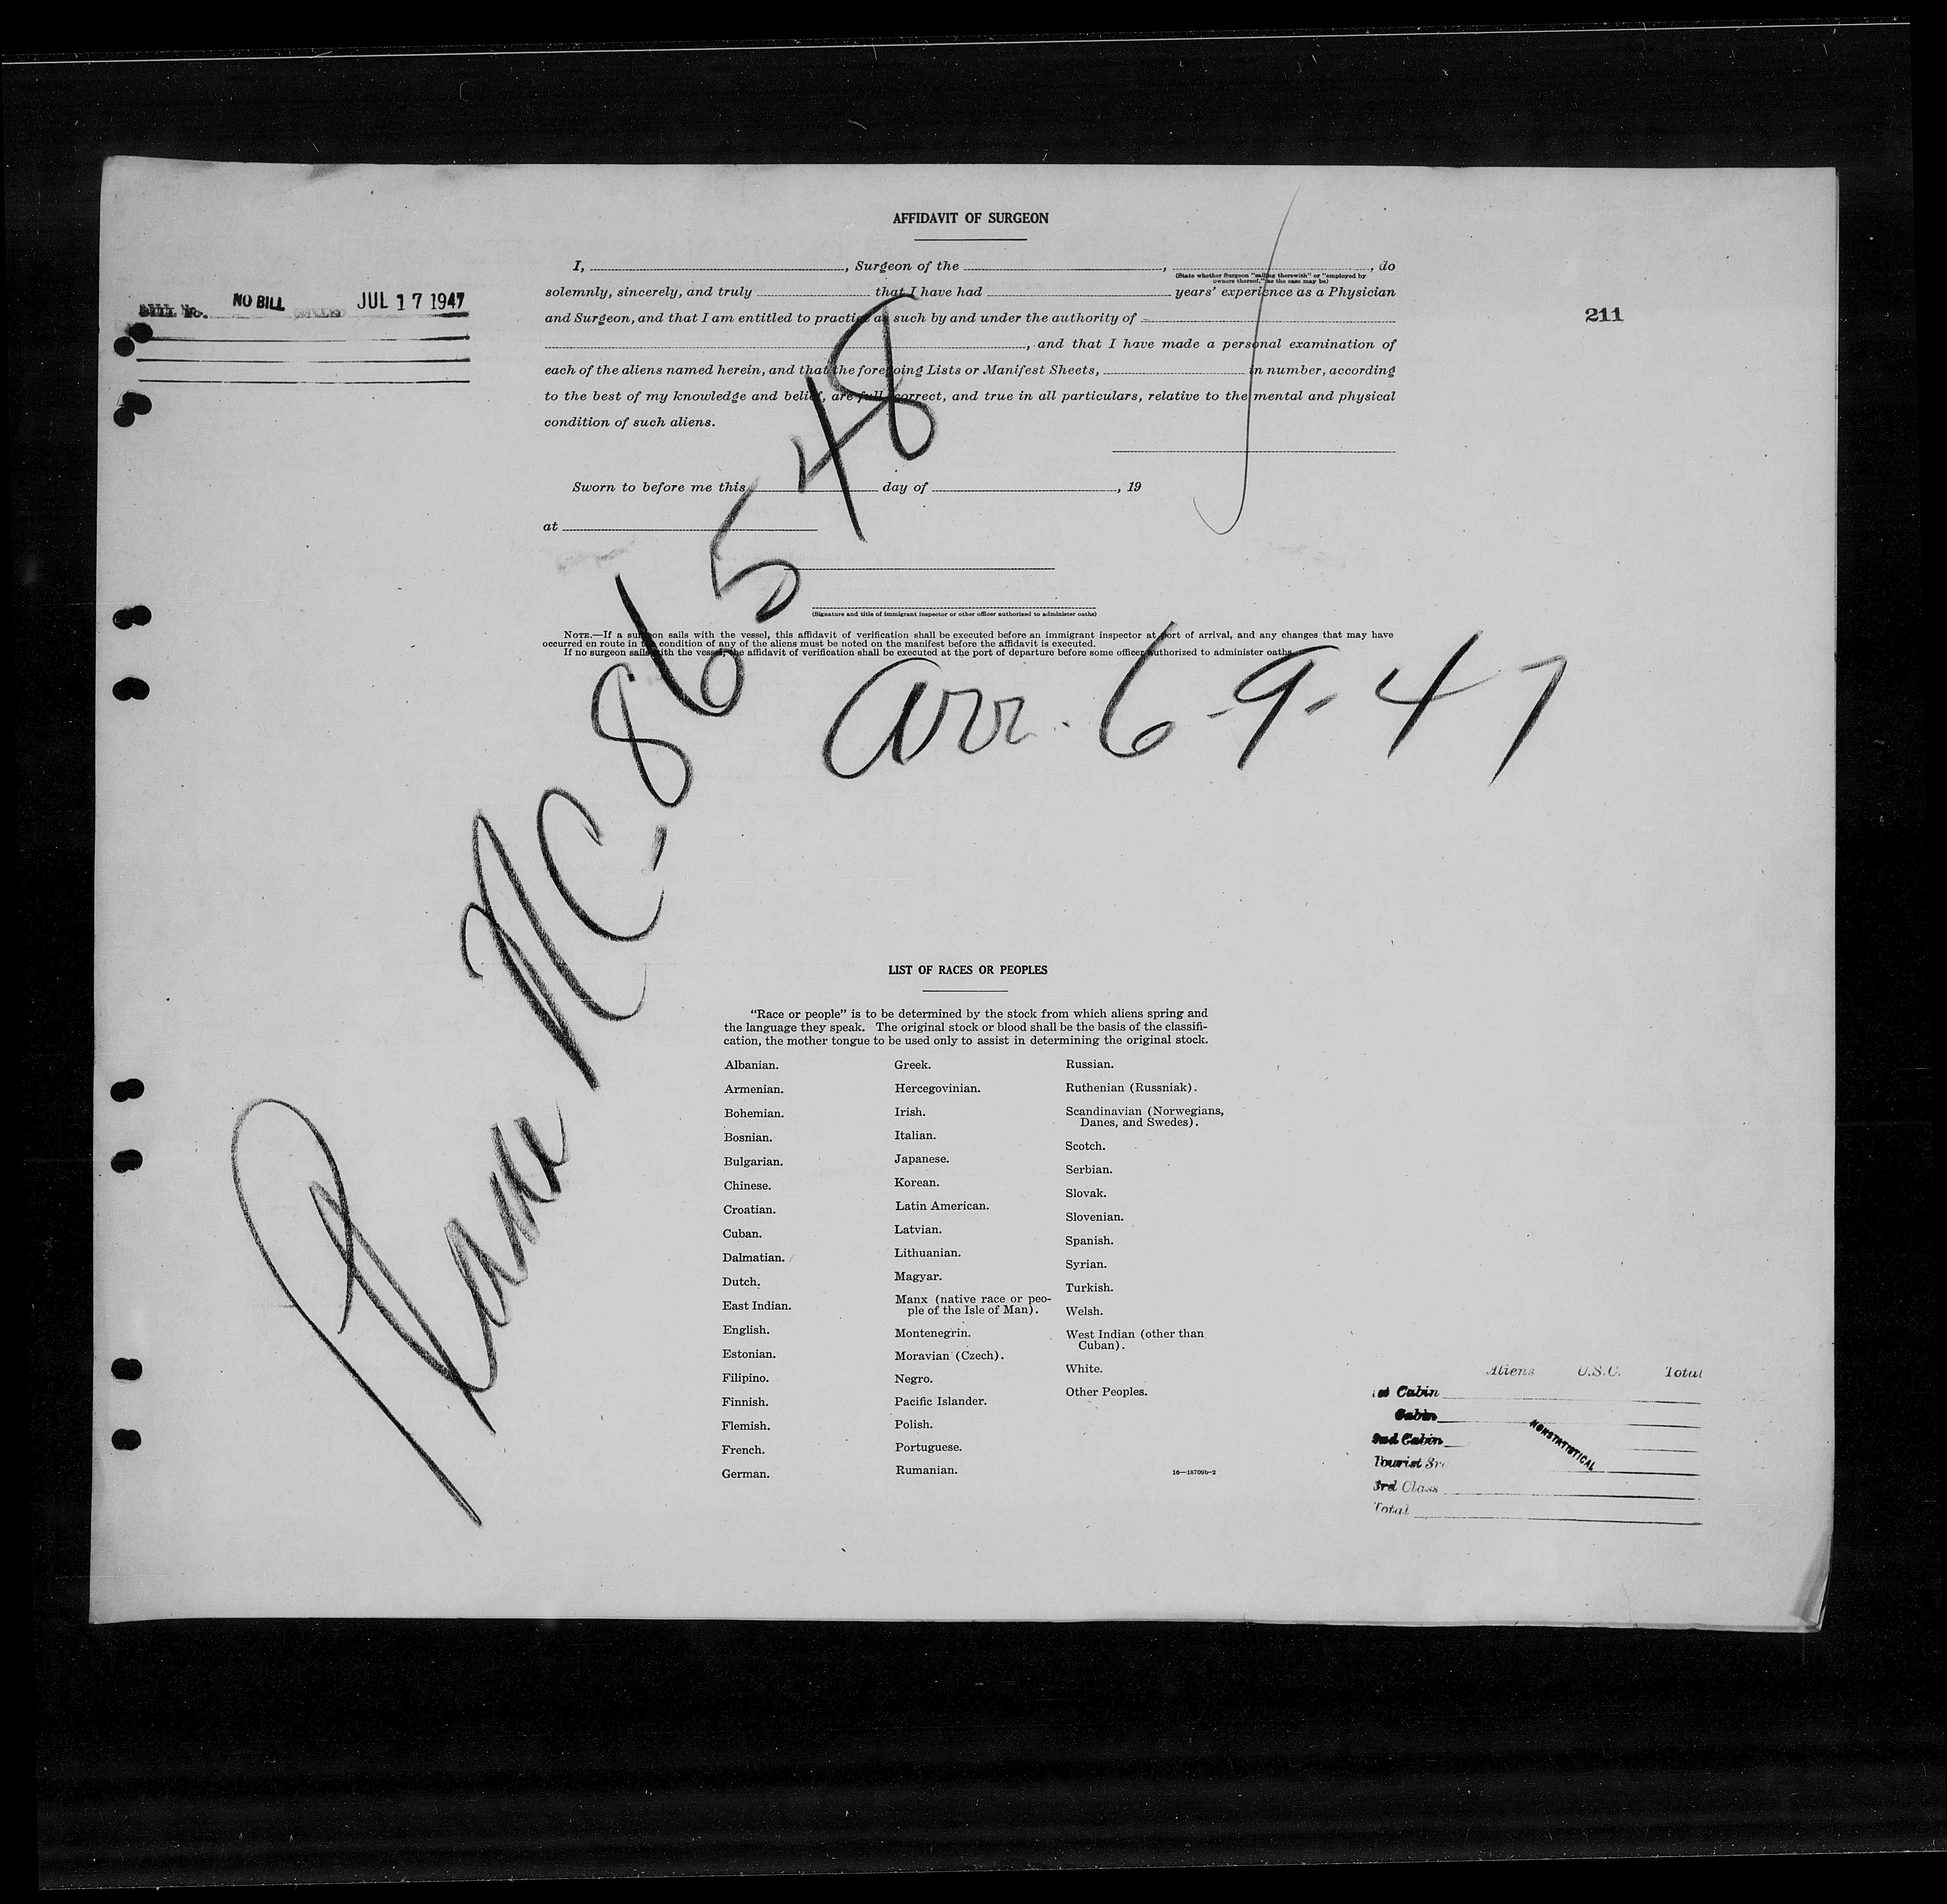 AFFIDAVIT OF SURGEON
I, , Surgeon of the , , do
(State whether Surgeon "sailing therewith" or "employed by
owners thereof," as the case may be)
solemnly, sincerely, and truly that I have had years' experience as a Physician
and Surgeon, and that I am entitled to practice as such by and under the authority of
, and that I have made a personal examination of
each of the aliens named herein, and that the foregoing Lists or Manifest Sheets, in number, according
to the best of my knowledge and belief, are full, correct, and true in all particulars, relative to the mental and physical
condition of such aliens.
Bill No. NO BILL JUL 17 1947
211
Sworn to before me this day of , 19
at
(Signature and title of immigrant inspector or other officer authorized to administer oaths)
NOTE.—If a surgeon sails with the vessel, this affidavit of verification shall be executed before an immigrant inspector at port of arrival, and any changes that may have
occurred en route in the condition of any of the aliens must be noted on the manifest before the affidavit is executed.
If no surgeon sails with the vessel, the affidavit of verification shall be executed at the port of departure before some officer authorized to administer oaths.
Plane NC-86548
arr. 6-9-47
LIST OF RACES OR PEOPLES
"Race or people" is to be determined by the stock from which aliens spring and
the language they speak. The original stock or blood shall be the basis of the classifi-
cation, the mother tongue to be used only to assist in determining the original stock.
Albanian.
Armenian.
Bohemian.
Bosnian.
Bulgarian.
Chinese.
Croatian.
Cuban.
Dalmatian.
Dutch.
East Indian.
English.
Estonian.
Filipino.
Finnish.
Flemish.
French.
German.
Greek.
Hercegovinian.
Irish.
Italian.
Japanese.
Korean.
Latin American.
Latvian.
Lithuanian.
Magyar.
Manx (native race or peo-
ple of the Isle of Man).
Montenegrin.
Moravian (Czech).
Negro.
Pacific Islander.
Polish.
Portuguese.
Rumanian.
Russian.
Ruthenian (Russniak).
Scandinavian (Norwegians,
Danes, and Swedes).
Scotch.
Serbian.
Slovak.
Slovenian.
Spanish.
Syrian.
Turkish.
Welsh.
West Indian (other than
Cuban).
White.
Other Peoples.
16—18709b-2
Aliens U.S.C. Total
1st Cabin
Cabin
2nd Cabin
Tourist 3rd
3rd Class
Total
NONSTATISTICAL